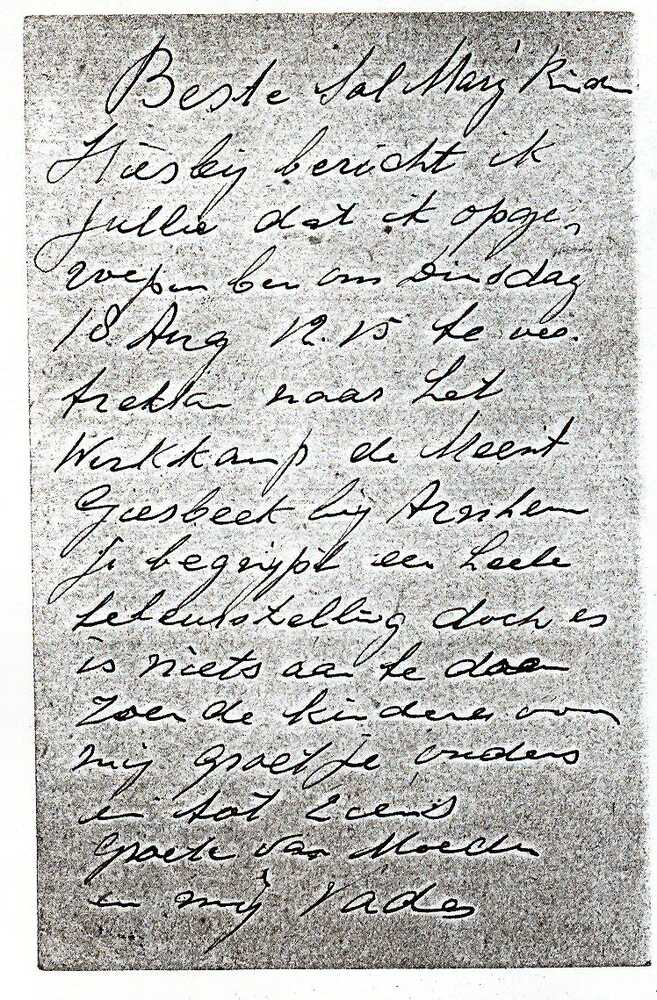 Beste Sal Mary Kinder
Hierbij bericht ik
jullie dat ik opge,
roepen ben om Dinsdag
18 Aug 12.15 te ver
trekken naar het
Werkkamp de Meent
Giesbeek bij Arnhem
Je begrijpt een heele
teleurstelling doch er
is niets aan te doen
zoen de kinderen van
mij groet je ouders
en tot ziens
Groete van Moeder
en mij Vader